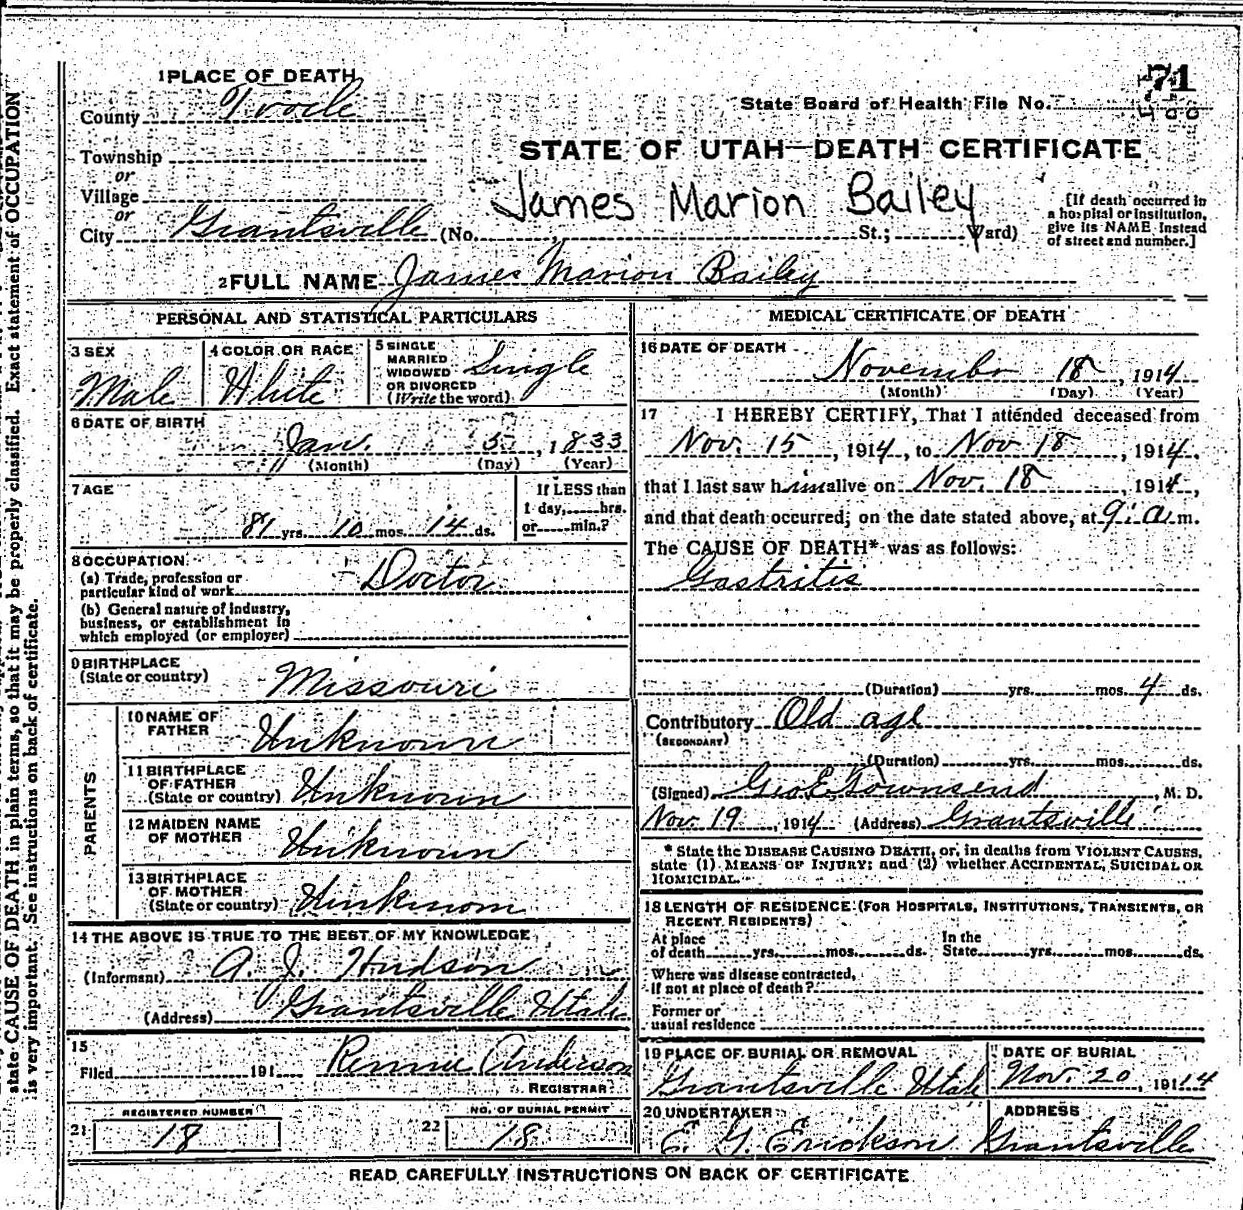 1 PLACE OF DEATH
County Tooele
State Board of Health File No. 71
400
Township
STATE OF UTAH—DEATH CERTIFICATE
or
Village
James Marion Bailey
or
City Grantsville (No. St.; Ward)
[If death occurred in
a hospital or institution,
give its NAME instead
of street and number.]
2 FULL NAME James Marion Bailey
PERSONAL AND STATISTICAL PARTICULARS
3 SEX
Male
4 COLOR OR RACE
White
5 SINGLE
MARRIED
WIDOWED
OR DIVORCED
(Write the word)
Single
6 DATE OF BIRTH
Jan. 5, 1833
(Month) (Day) (Year)
7 AGE
81 yrs. 10 mos. 14 ds.
If LESS than
1 day, hrs.
or min.?
8 OCCUPATION
(a) Trade, profession or
particular kind of work Doctor
(b) General nature of industry,
business, or establishment in
which employed (or employer)
9 BIRTHPLACE
(State or country) Missouri
PARENTS
10 NAME OF
FATHER Unknown
11 BIRTHPLACE
OF FATHER
(State or country) Unknown
12 MAIDEN NAME
OF MOTHER Unknown
13 BIRTHPLACE
OF MOTHER
(State or country) Unknown
14 THE ABOVE IS TRUE TO THE BEST OF MY KNOWLEDGE
(Informant) A. J. Hudson
(Address) Grantsville Utah
15
Filed 191 Rennie Anderson
REGISTRAR
REGISTERED NUMBER
21 18
NO. OF BURIAL PERMIT
22 18
MEDICAL CERTIFICATE OF DEATH
16 DATE OF DEATH
November 18, 1914
(Month) (Day) (Year)
17 I HEREBY CERTIFY, That I attended deceased from
Nov. 15, 1914, to Nov 18, 1914,
that I last saw him alive on Nov. 18, 1914,
and that death occurred, on the date stated above, at 9. a m.
The CAUSE OF DEATH* was as follows:
Gastritis
(Duration) yrs. mos. 4 ds.
Contributory Old age
(SECONDARY)
(Duration) yrs. mos. ds.
(Signed) Geo E Townsend, M. D.
Nov. 19, 1914 (Address) Grantsville
* State the DISEASE CAUSING DEATH, or, in deaths from VIOLENT CAUSES,
state (1) MEANS OF INJURY; and (2) whether ACCIDENTAL, SUICIDAL OR
HOMICIDAL.
18 LENGTH OF RESIDENCE (FOR HOSPITALS, INSTITUTIONS, TRANSIENTS, OR
RECENT RESIDENTS)
At place
of death yrs. mos. ds.
In the
State yrs. mos. ds.
Where was disease contracted,
if not at place of death?
Former or
usual residence
19 PLACE OF BURIAL OR REMOVAL
Grantsville Utah
DATE OF BURIAL
Nov. 20, 19114
20 UNDERTAKER
E. G. Erickson
ADDRESS
Grantsville
READ CAREFULLY INSTRUCTIONS ON BACK OF CERTIFICATE
state CAUSE OF DEATH in plain terms, so that it may be properly classified. Exact statement of OCCUPATION
is very important. See instructions on back of certificate.